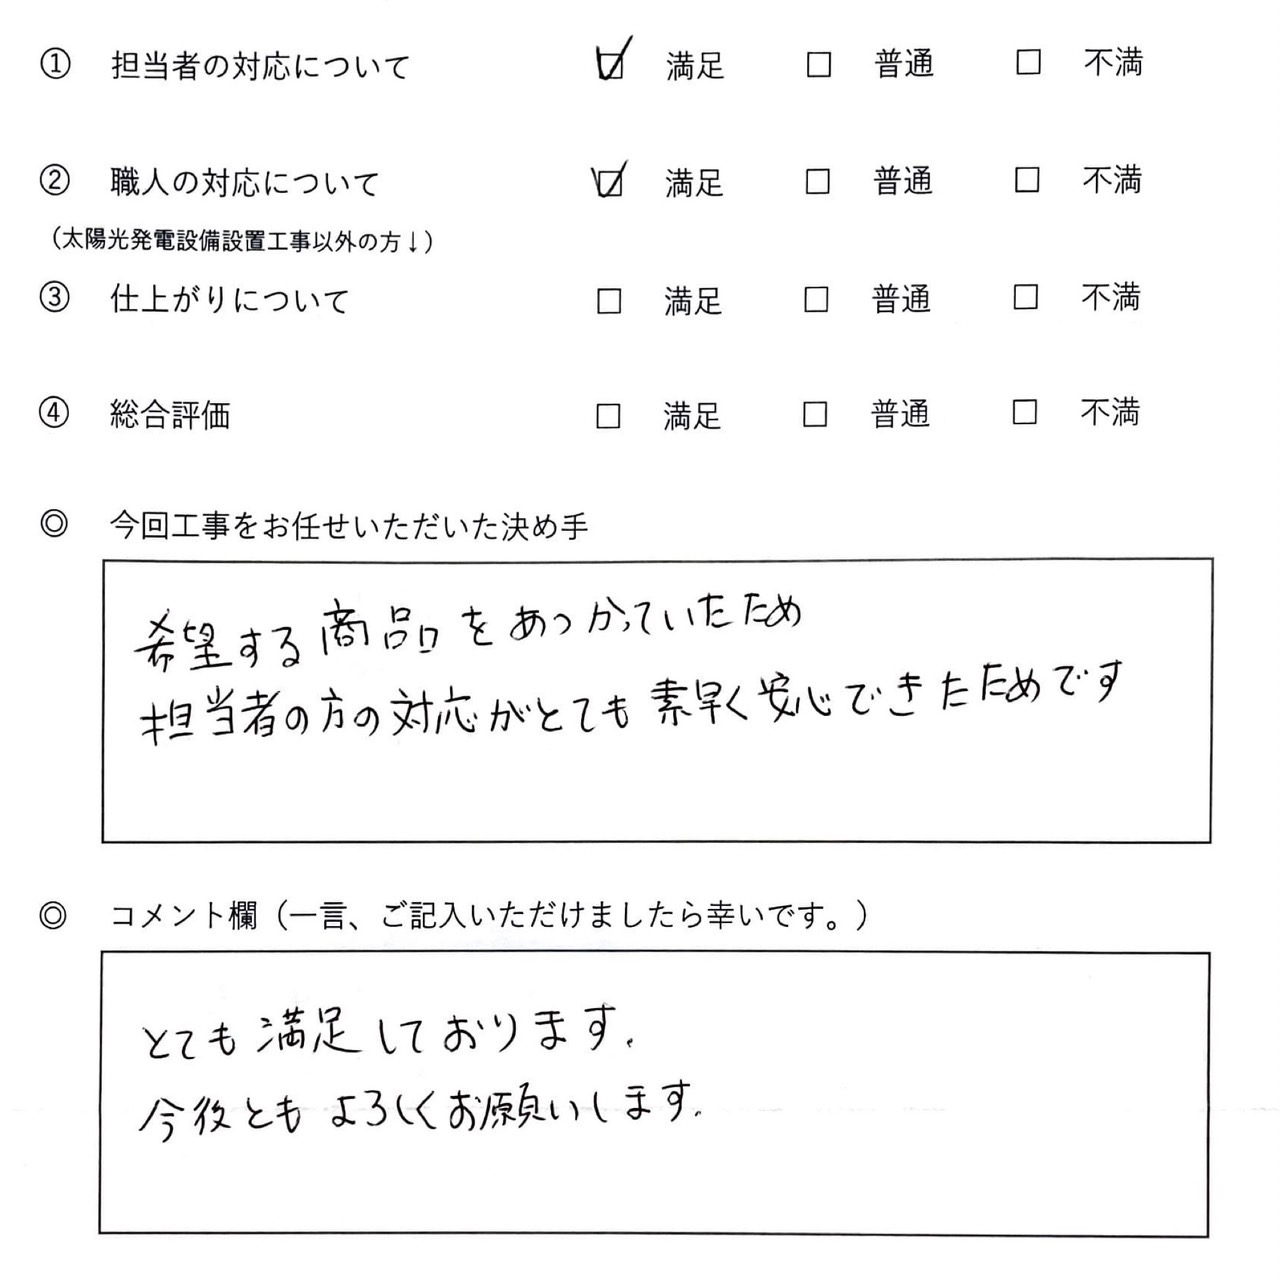 ① 担当者の対応について ☑ 満足 □ 普通 □ 不満
② 職人の対応について ☑ 満足 □ 普通 □ 不満
（太陽光発電設備設置工事以外の方↓）
③ 仕上がりについて □ 満足 □ 普通 □ 不満
④ 総合評価 □ 満足 □ 普通 □ 不満
◎ 今回工事をお任せいただいた決め手
希望する商品をあつかっていたため
担当者の方の対応がとても素早く安心できたためです
◎ コメント欄（一言、ご記入いただけましたら幸いです。）
とても満足しております。
今後ともよろしくお願いします。